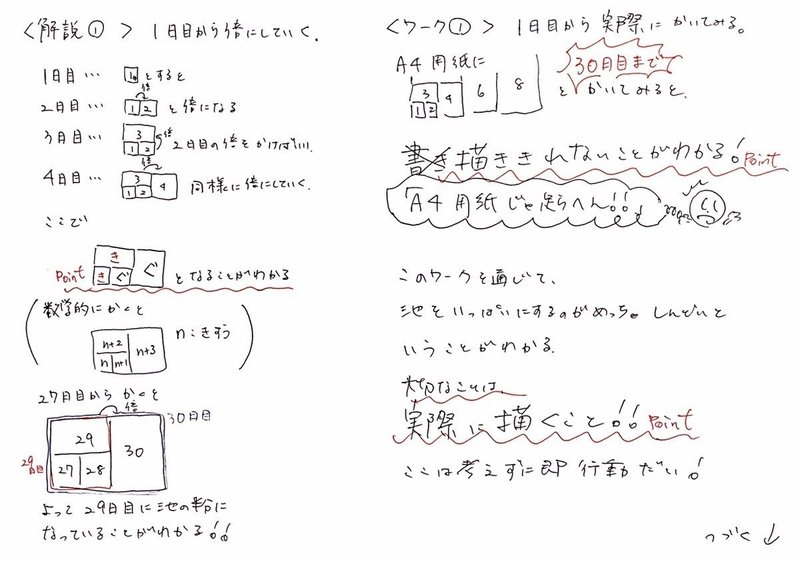 <解説①> 1日目から倍にしていく.
1日目… 1 とすると
倍
2日目… 1 2 と倍になる
3日目… 3 1 2 倍 2日目の倍をかけばいい.
倍
4日目… 3 1 2 4 同様に倍にしていく.
ここで
Point き き ぐ ぐ となることがわかる
(数学的にかくと
n+2 n n+1 n+3 n:きすう)
27日目からかくと
倍
30日目
29 27 28 30
29日目
よって29日目に池の半分に
なっていることがわかる!!
<ワーク①> 1日目から実際にかいてみる。
A4用紙に
3 1 2 4 6 8
30日目まで
とかいてみると.
書き描ききれないことがわかる! Point
A4用紙じゃ足らへん!!!
このワークを通じて、
池をいっぱいにするのがめっちゃしんどいと
いうことがわかる.
大切なことは、
実際に描くこと!! Point
ここは考えずに即行動だい!
つづく↓